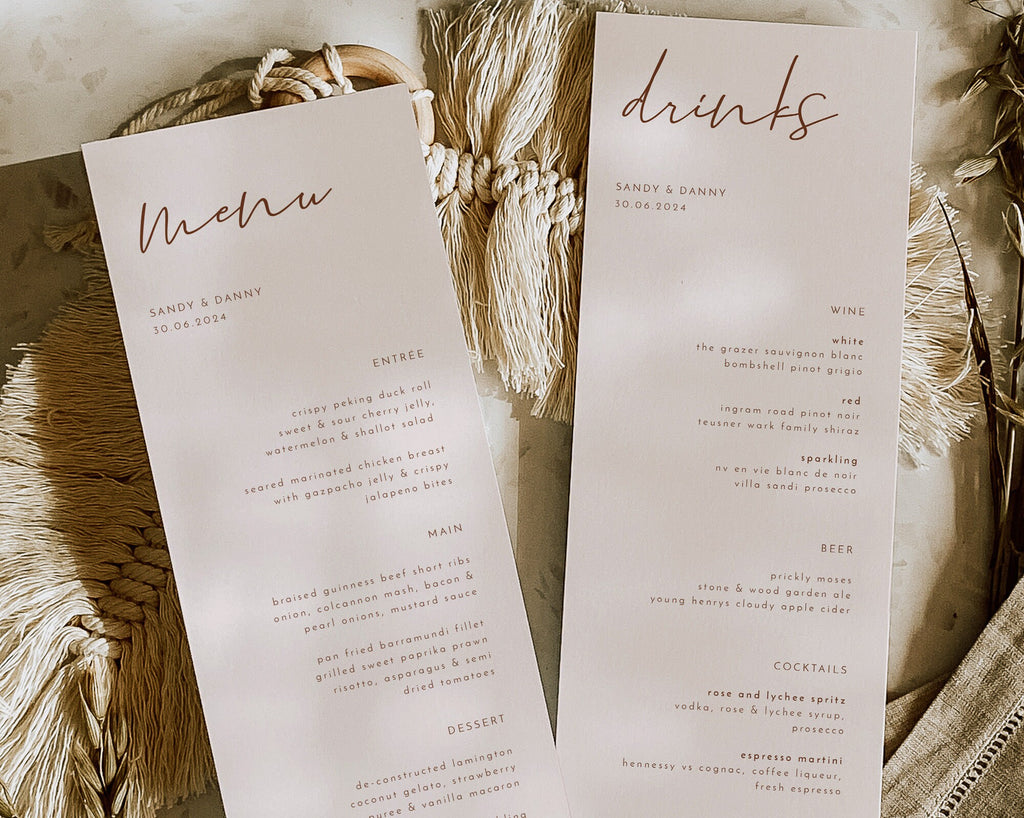 menu
SANDY & DANNY
30.06.2024
ENTRÉE
crispy peking duck roll
sweet & sour cherry jelly,
watermelon & shallot salad
seared marinated chicken breast
with gazpacho jelly & crispy
jalapeno bites
MAIN
braised guinness beef short ribs
onion, colcannon mash, bacon &
pearl onions, mustard sauce
pan fried barramundi fillet
grilled sweet paprika prawn
risotto, asparagus & semi
dried tomatoes
DESSERT
de-constructed lamington
coconut gelato, strawberry
puree & vanilla macaron
drinks
SANDY & DANNY
30.06.2024
WINE
white
the grazer sauvignon blanc
bombshell pinot grigio
red
ingram road pinot noir
teusner wark family shiraz
sparkling
nv en vie blanc de noir
villa sandi prosecco
BEER
prickly moses
stone & wood garden ale
young henrys cloudy apple cider
COCKTAILS
rose and lychee spritz
vodka, rose & lychee syrup,
prosecco
espresso martini
hennessy vs cognac, coffee liqueur,
fresh espresso